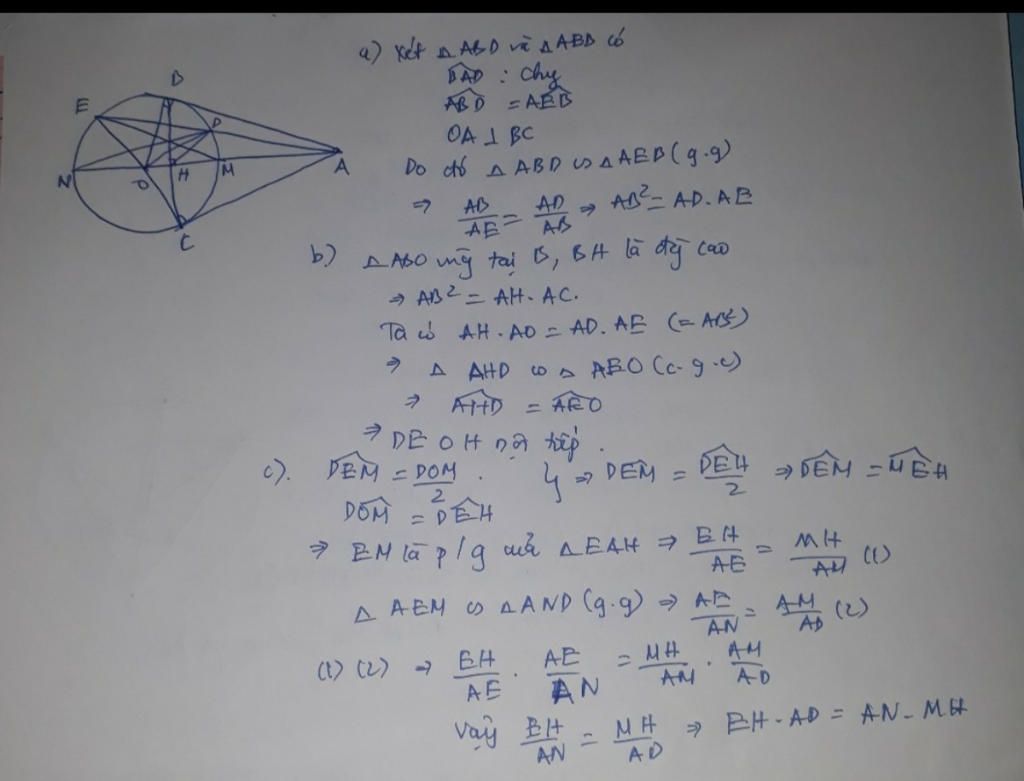 a) Xét △ABD và △AEB có
B
E
D
A
N
O
H
M
C
$\widehat{BAD}$ : chg
$\widehat{ABD}$ = $\widehat{AEB}$
OA ⊥ BC
Do đó △ABD ∽ △AEB (g.g)
⇒ $\frac{AB}{AE} = \frac{AD}{AB}$ ⇒ AB² = AD.AE
b) △ABO vg̃ tại B, BH là đg̃ cao
⇒ AB² = AH.AC.
Ta có AH.AO = AD.AE (= AB²)
⇒ △AHD ∽ △AEO (c.g.c)
⇒ $\widehat{AHD}$ = $\widehat{AEO}$
⇒ DEOH nội tiếp.
c). $\widehat{DEM} = \frac{\widehat{DOM}}{2}$. } ⇒ $\widehat{DEM} = \frac{\widehat{DEH}}{2}$ ⇒ $\widehat{DEM} = \widehat{MEH}$
$\widehat{DOM} = \widehat{DEH}$
⇒ EM là p/g của △EAH ⇒ $\frac{EH}{AE} = \frac{MH}{AM}$ (1)
△AEM ∽ △AND (g.g) ⇒ $\frac{AE}{AN} = \frac{AM}{AD}$ (2)
(1) (2) ⇒ $\frac{EH}{AE} . \frac{AE}{AN} = \frac{MH}{AM} . \frac{AM}{AD}$
Vậy $\frac{EH}{AN} = \frac{MH}{AD}$ ⇒ EH.AD = AN.MH